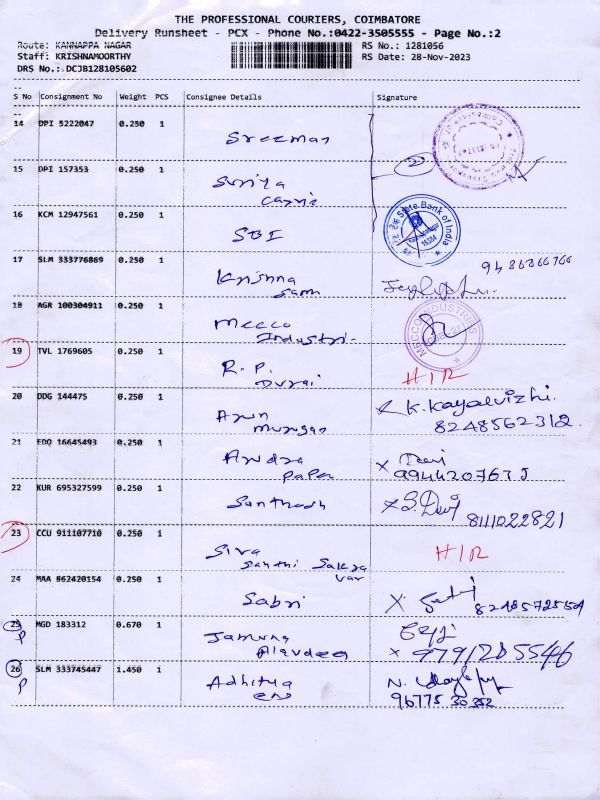 THE PROFESSIONAL COURIERS, COIMBATORE
Delivery Runsheet - PCX - Phone No.:0422-3505555 - Page No.:2
Route: KANNAPPA NAGAR RS No.: 1281056
Staff: KRISHNAMOORTHY RS Date: 28-Nov-2023
DRS No.: DCJB128105602
S No Consignment No Weight PCS Consignee Details Signature
14 DPI 5222047 0.250 1
Sreeman
15 DPI 157353 0.250 1 2
Suriya
16 KCM 12947561 0.250 1 State Bank of India
SBI
17 SLM 333776869 0.250 1
Krishna
18 AGR 100304911 0.250 1 MECCO INDUSTRIES
Mecco
Industri-
19 TVL 1769605 0.250 1
R. P. HIR
Durai
20 DDG 144475 0.250 1
Arun K. Kayalvizhi.
Murugan 8248562312.
21 EDQ 16645493 0.250 1
Andra X
Paper
22 KUR 695327599 0.250 1
Santhosh X S. Devi
8111022821
23 CCU 911107710 0.250 1
Siva HIR
Santhi Sakza
var
24 MAA 862420154 0.250 1
Sabri X
25 MGD 183312 0.670 1
P Jamuna
X 9791205546
26 SLM 333745447 1.450 1
P Adhitya N.
96775 30352